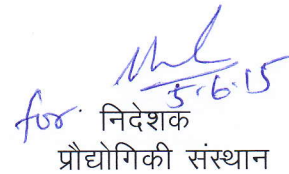 5.6.15
for निदेशक
प्रौद्योगिकी संस्थान